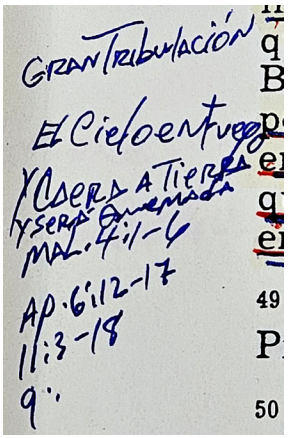 GRAN TRIBULACIÓN
El Cielo en Fuego
Y CAERA A TIERRA
Y SERA QUEMADA
MAL. 4:1-6
AP. 6:12-17
11:3-18
9:
q
B
p
en
qu
en
49
P
50